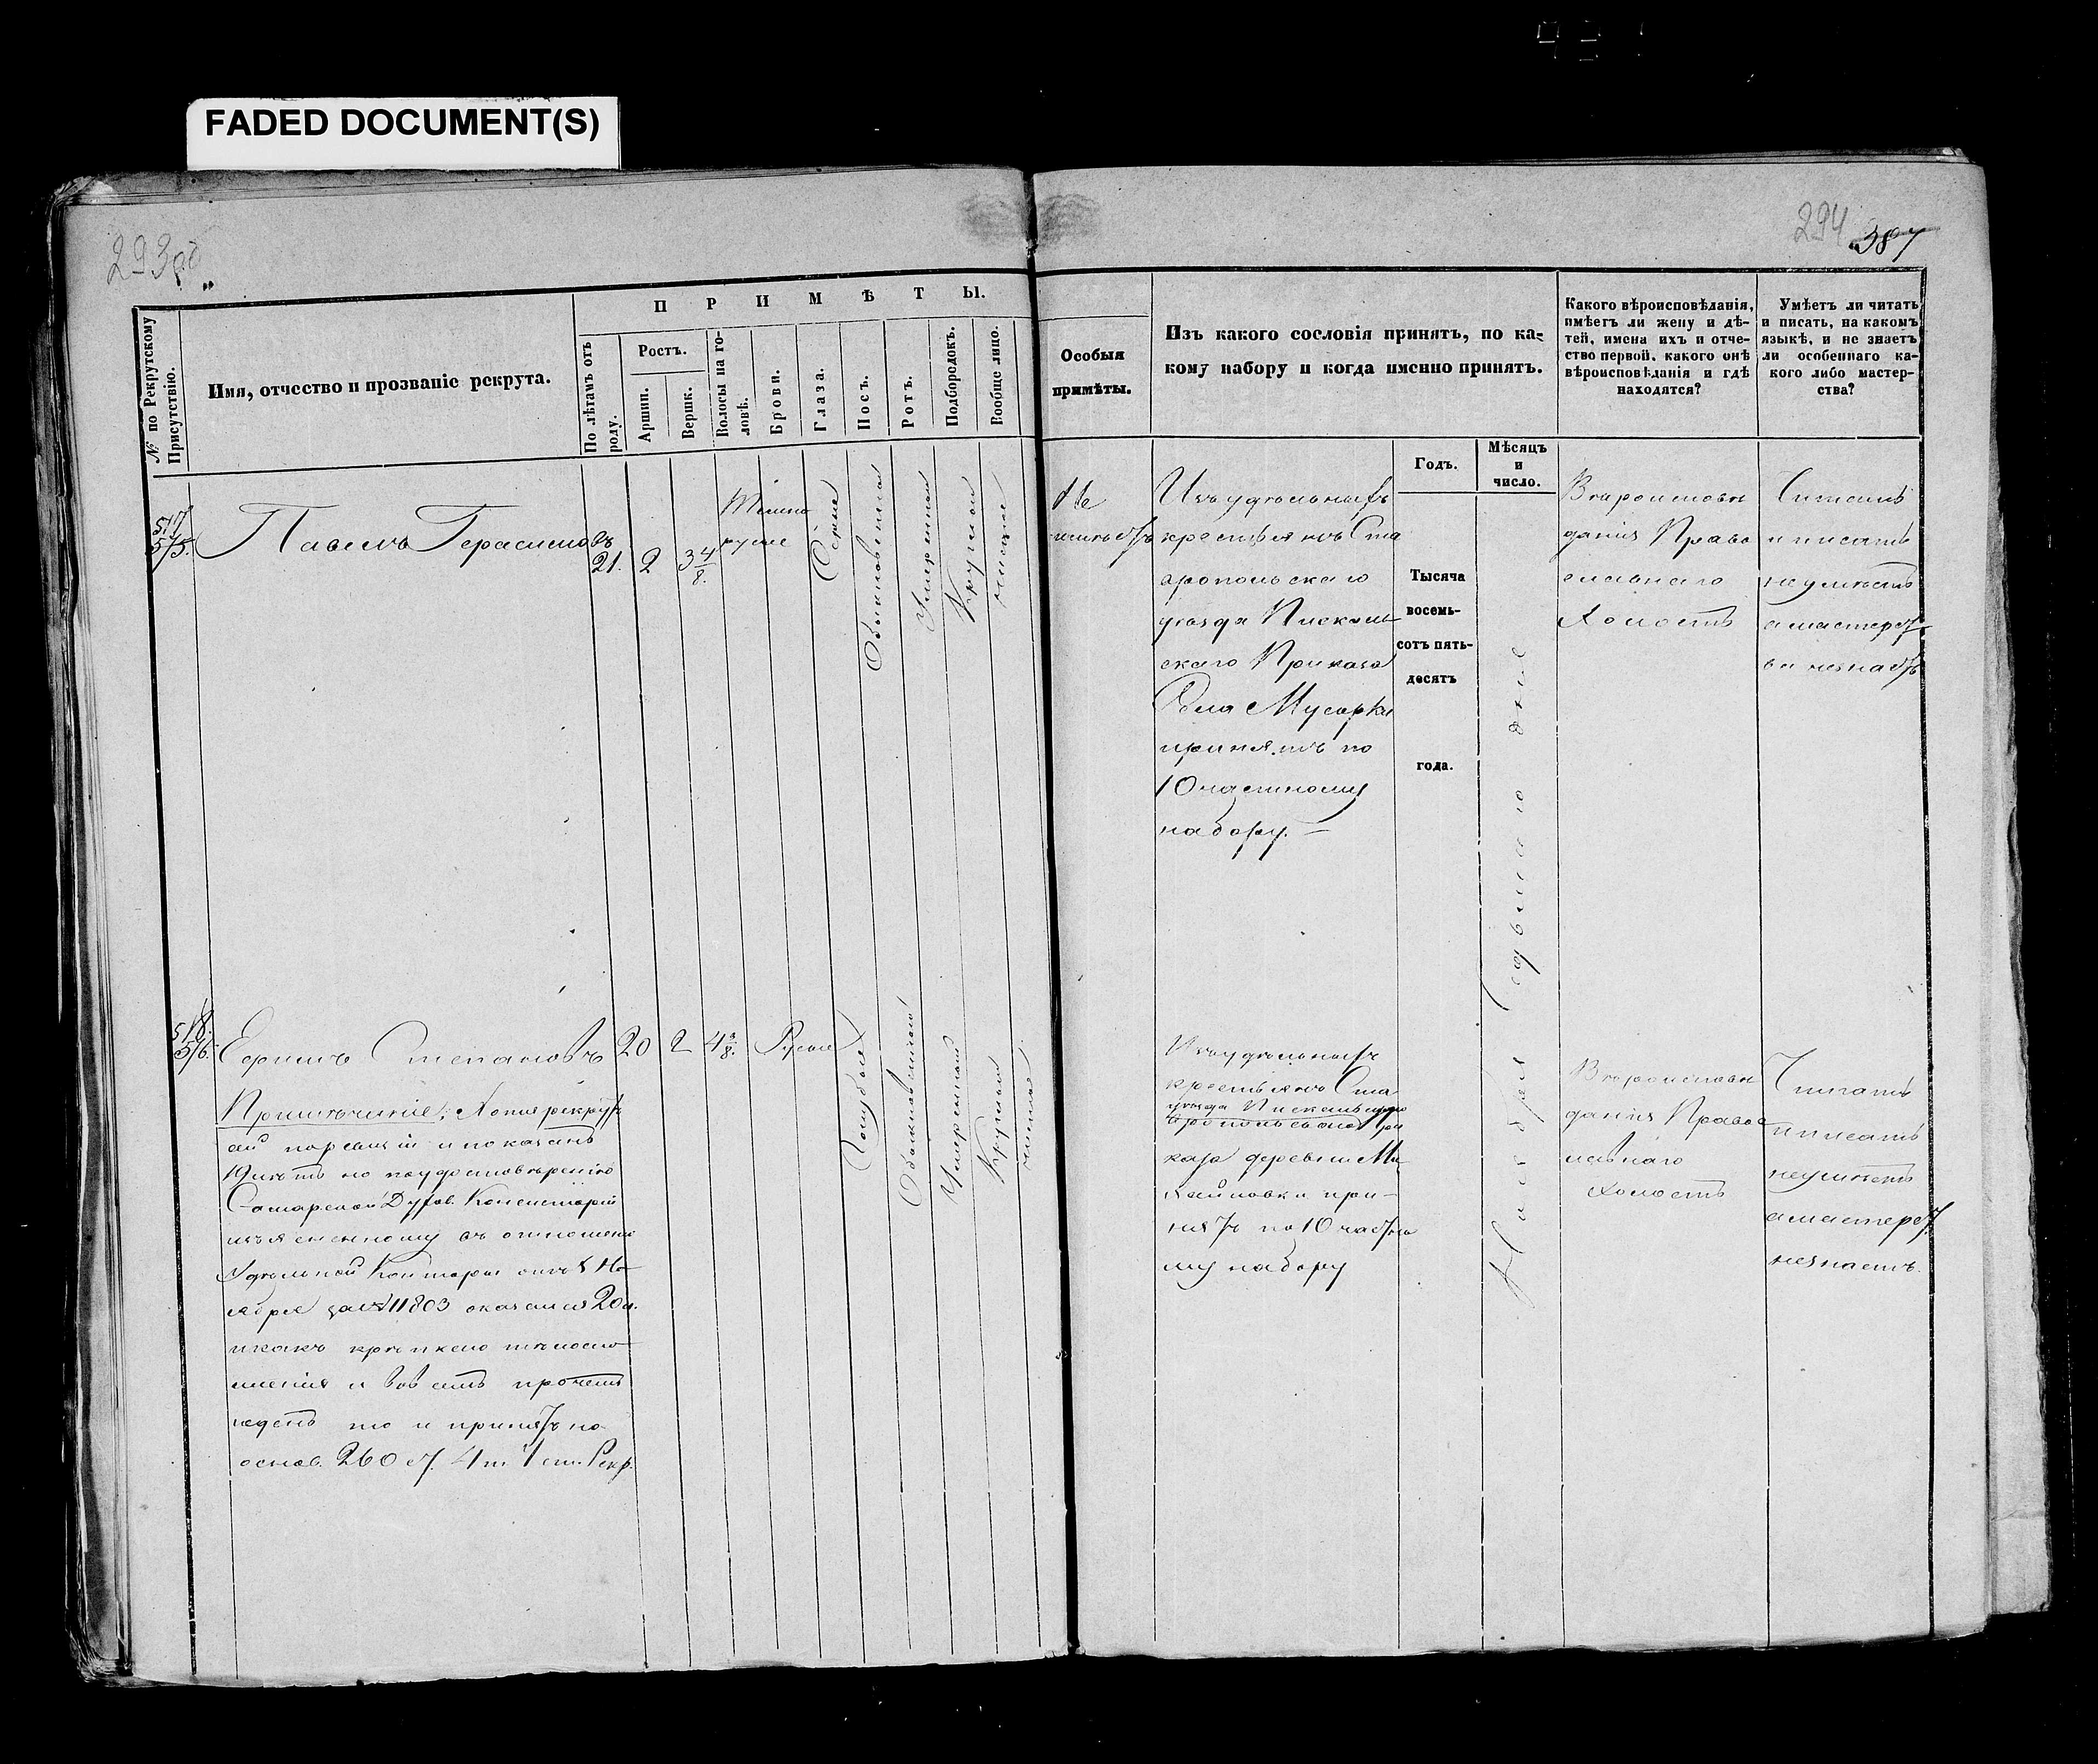 FADED DOCUMENT(S)
293об
294
387
№ по Рекрутскому Присутствію.
Имя, отчество и прозваніе рекрута.
ПРИМѢТЫ.
По лѣтамъ отъ роду.
Ростъ.
Аршин.
Вершк.
Волосы на головѣ.
Брови.
Глаза.
Носъ.
Ротъ.
Подбородокъ.
Вообще лицо.
Особыя
примѣты.
Изъ какого сословія принятъ, по ка-
кому набору и когда именно принятъ.
Годъ.
Мѣсяцъ
и
число.
Какого вѣроисповѣданія,
имѣетъ ли жену и дѣ-
тей, имена ихъ и отче-
ство первой, какого онѣ
вѣроисповѣданія и гдѣ
находятся?
Умѣетъ ли читать
и писать, на какомъ
языкѣ, и не знаетъ
ли особеннаго ка-
кого либо мастер-
ства?
517
515.
Павелъ Герасимовъ
21. 2 3 4/8.
Темно
русые
Сѣрые
Обыкновенной
Умѣренной
Круглой
чистое
Не
имѣетъ
Изъ удѣльныхъ
крестьянъ Ста
вропольскаго
уѣзда Пискаль
скаго Приказа
Села Мусорки
принятъ по
10 частному
набору. —
Тысяча
восемь-
сотъ пять-
десятъ
года.
Ноября седьмаго дня
Вѣроисповѣ
данія Право
славнаго
Холостъ
Читать
и писать
не умѣетъ
а мастерст
ва незнаетъ
518.
516.
Ефимъ Степановъ
20 2 4 3/8.
Русые
Голубые
Обыкновенной
Умѣренной
Круглой
чистое
Примѣчаніе; Хотя рекрутъ
сей по ревизіи и показанъ
19 лѣтъ но по удостовѣренію
Самарской Духов. Консисторіи
изъясненному въ отношеніи
Удѣльной Конторы отъ 5 Но-
ября за № 11803 оказался 20 л.
и какъ крѣпкаго тѣлосло-
женія и во всемъ прочемъ
годенъ то и принятъ на
основ. 260 ст. 4 т. 1 ст. Рекр.
Изъ удѣльныхъ
крестьянъ Ста
уѣзда Пискальскаго
вропольскаго При
каза деревни Ми
хайловки при-
нятъ по 10 частно
му набору
Вѣроисповѣ
данія Правос
лавнаго
Холостъ
Читать
и писать
не умѣетъ
а мастерст.
незнаетъ.